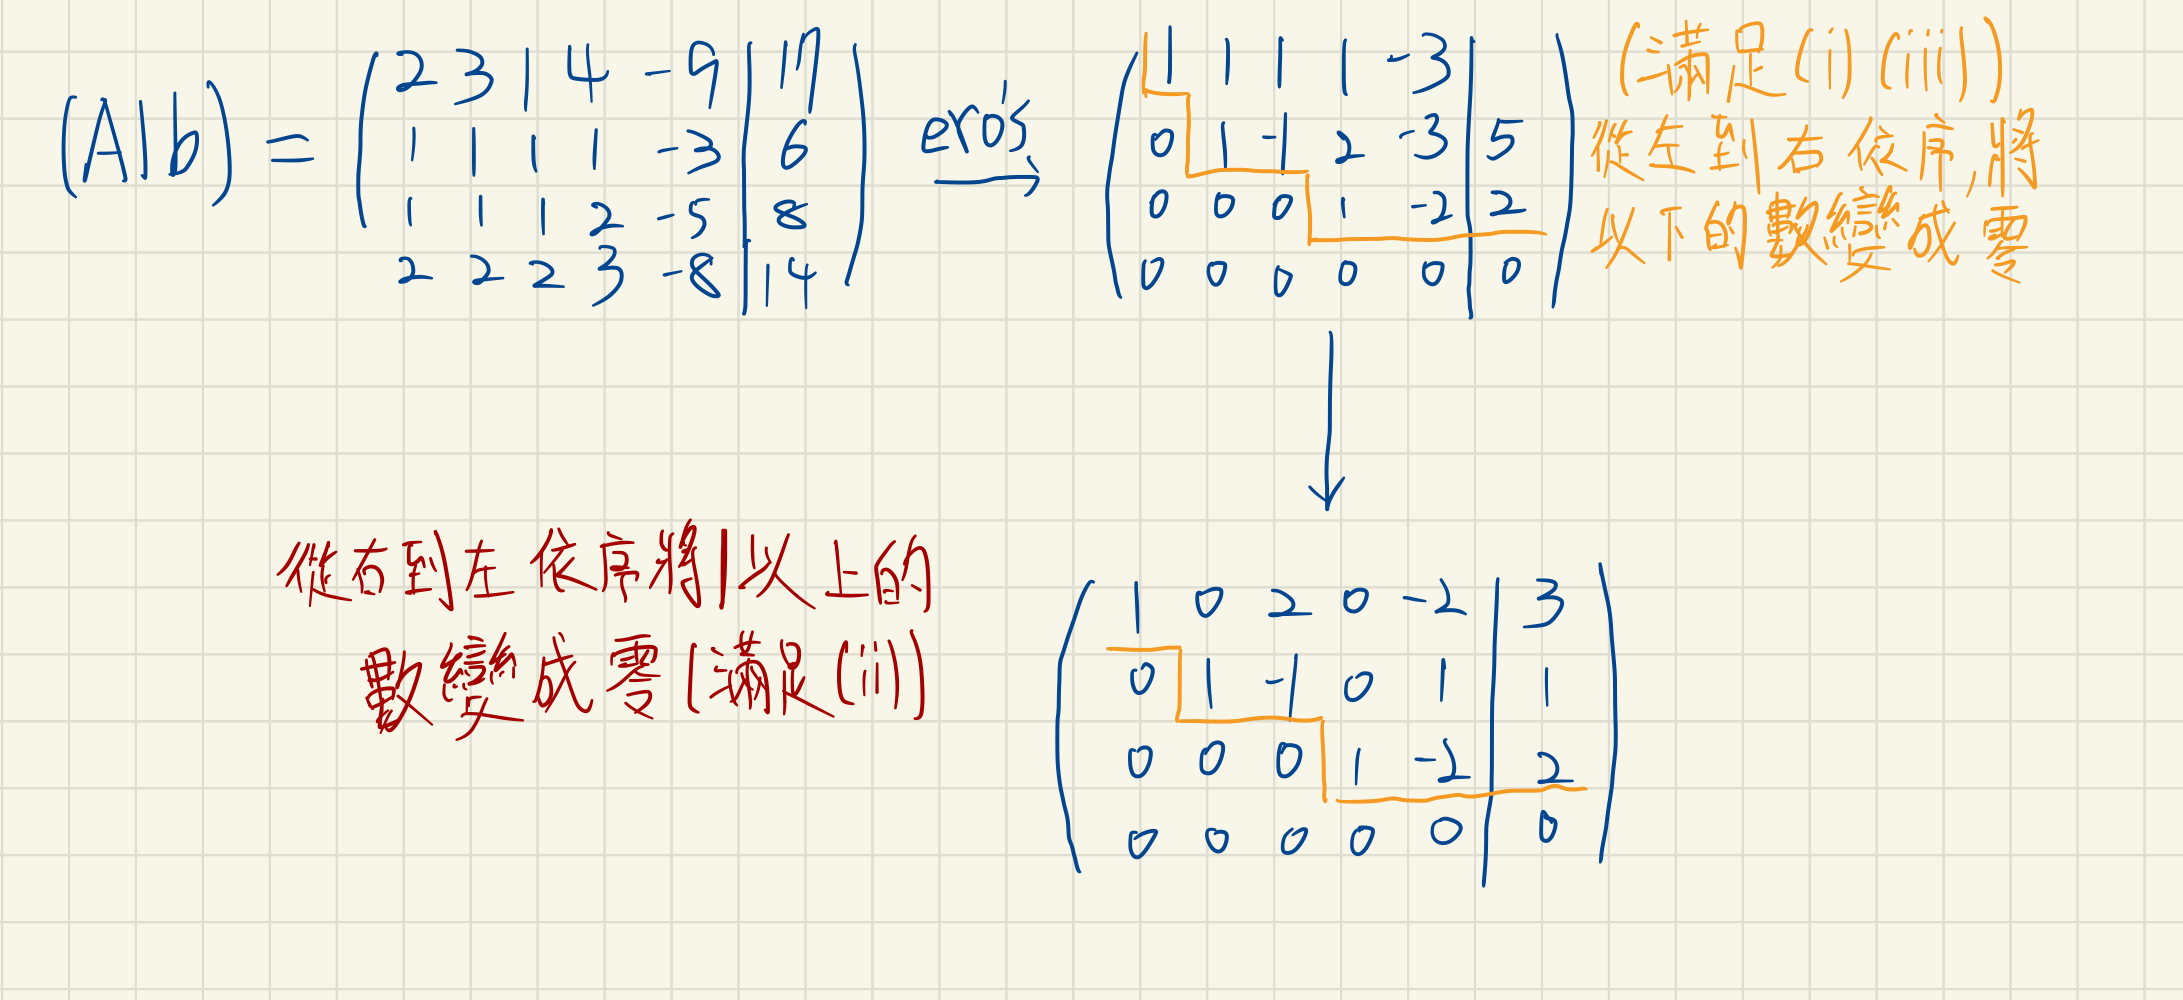 (A|b) = ( 2 3 1 4 -9 | 17 )
1 1 1 1 -3 | 6
1 1 1 2 -5 | 8
2 2 2 3 -8 | 14
ero's
( 1 1 1 1 -3 | )
0 1 -1 2 -3 | 5
0 0 0 1 -2 | 2
0 0 0 0 0 | 0
(滿足(i)(iii))
從左到右依序,將
以下的數變成零
從右到左依序將1以上的
數變成零(滿足(ii))
( 1 0 2 0 -2 | 3 )
0 1 -1 0 1 | 1
0 0 0 1 -2 | 2
0 0 0 0 0 | 0